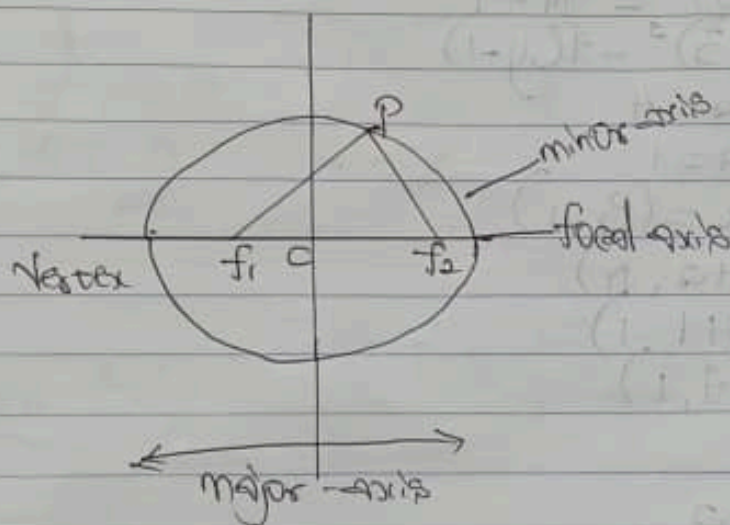 P
minor-axis
focal-axis
Vertex
f1
C
f2
major-axis